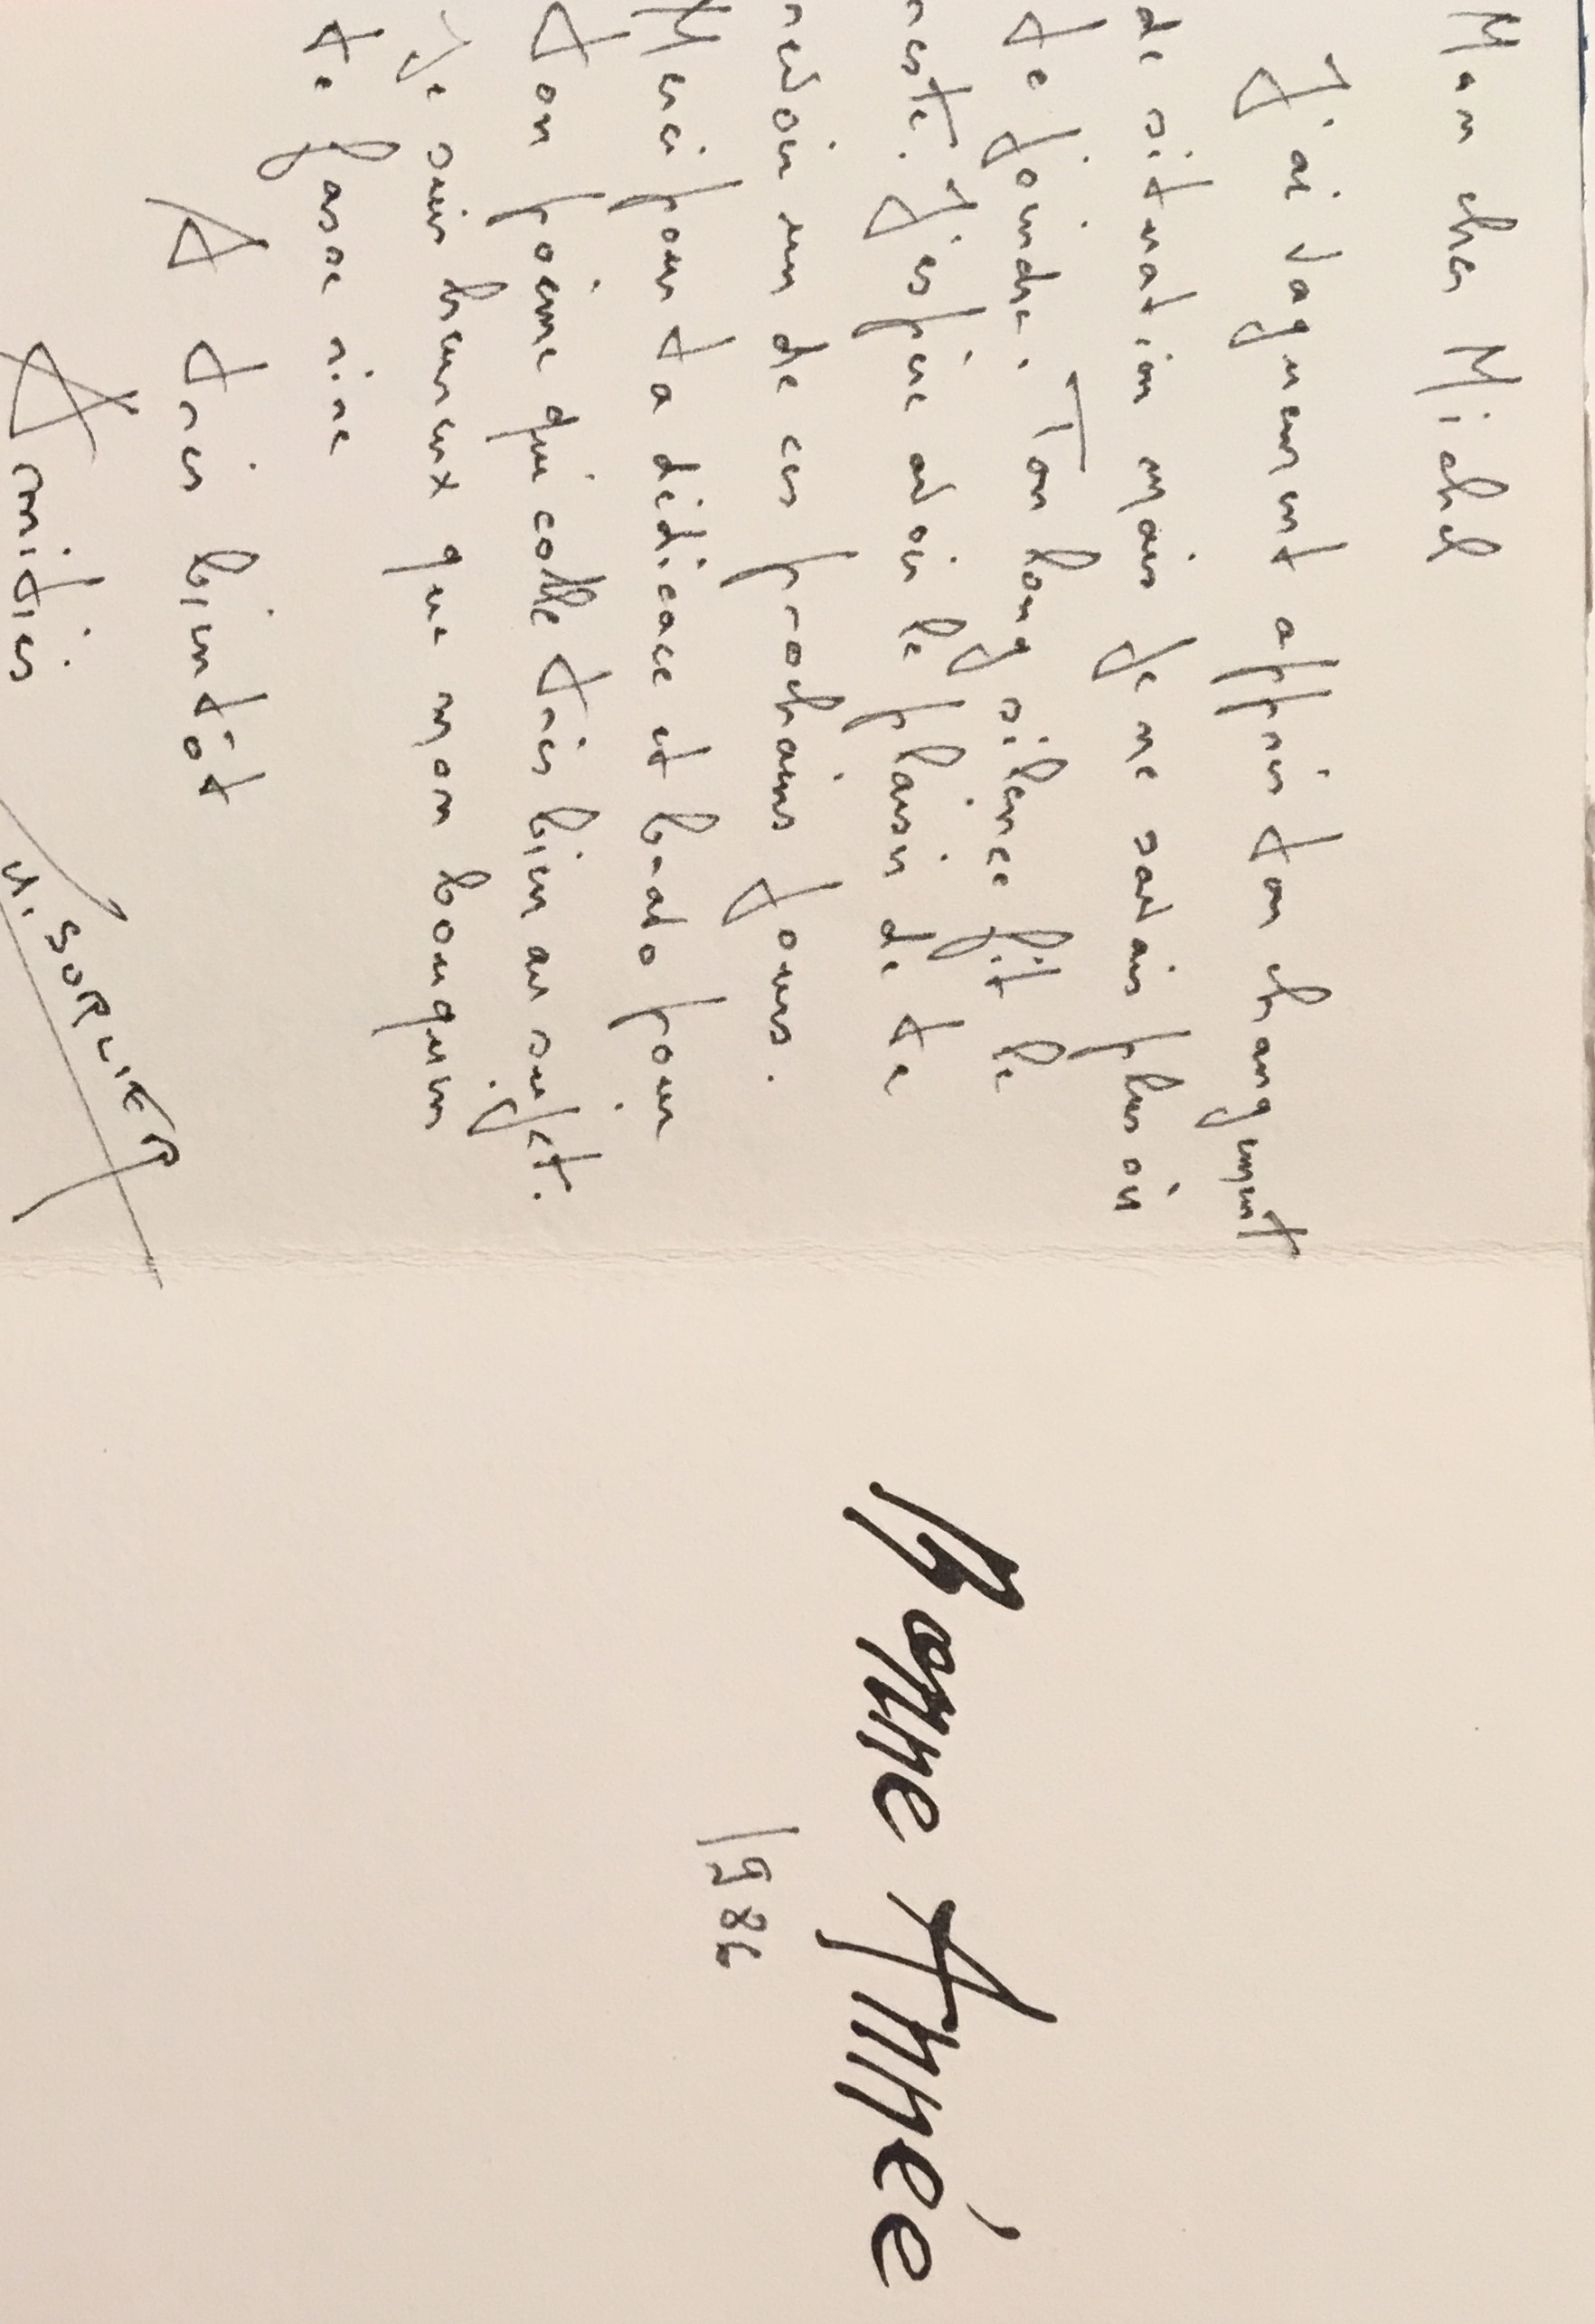 Mon cher Michel
J'ai vaguement appris ton changement
de situation mais je ne savais plus où
te joindre. Ton long silence fit le
reste. J'espère avoir le plaisir de te
revoir un de ces prochains jours.
Merci pour ta dédicace et bravo pour
ton poème qui colle très bien au sujet.
Je suis heureux que mon bouquin
te fasse rire
A très bientôt
Amitiés
H. SORLIER
Bonne Année
1986